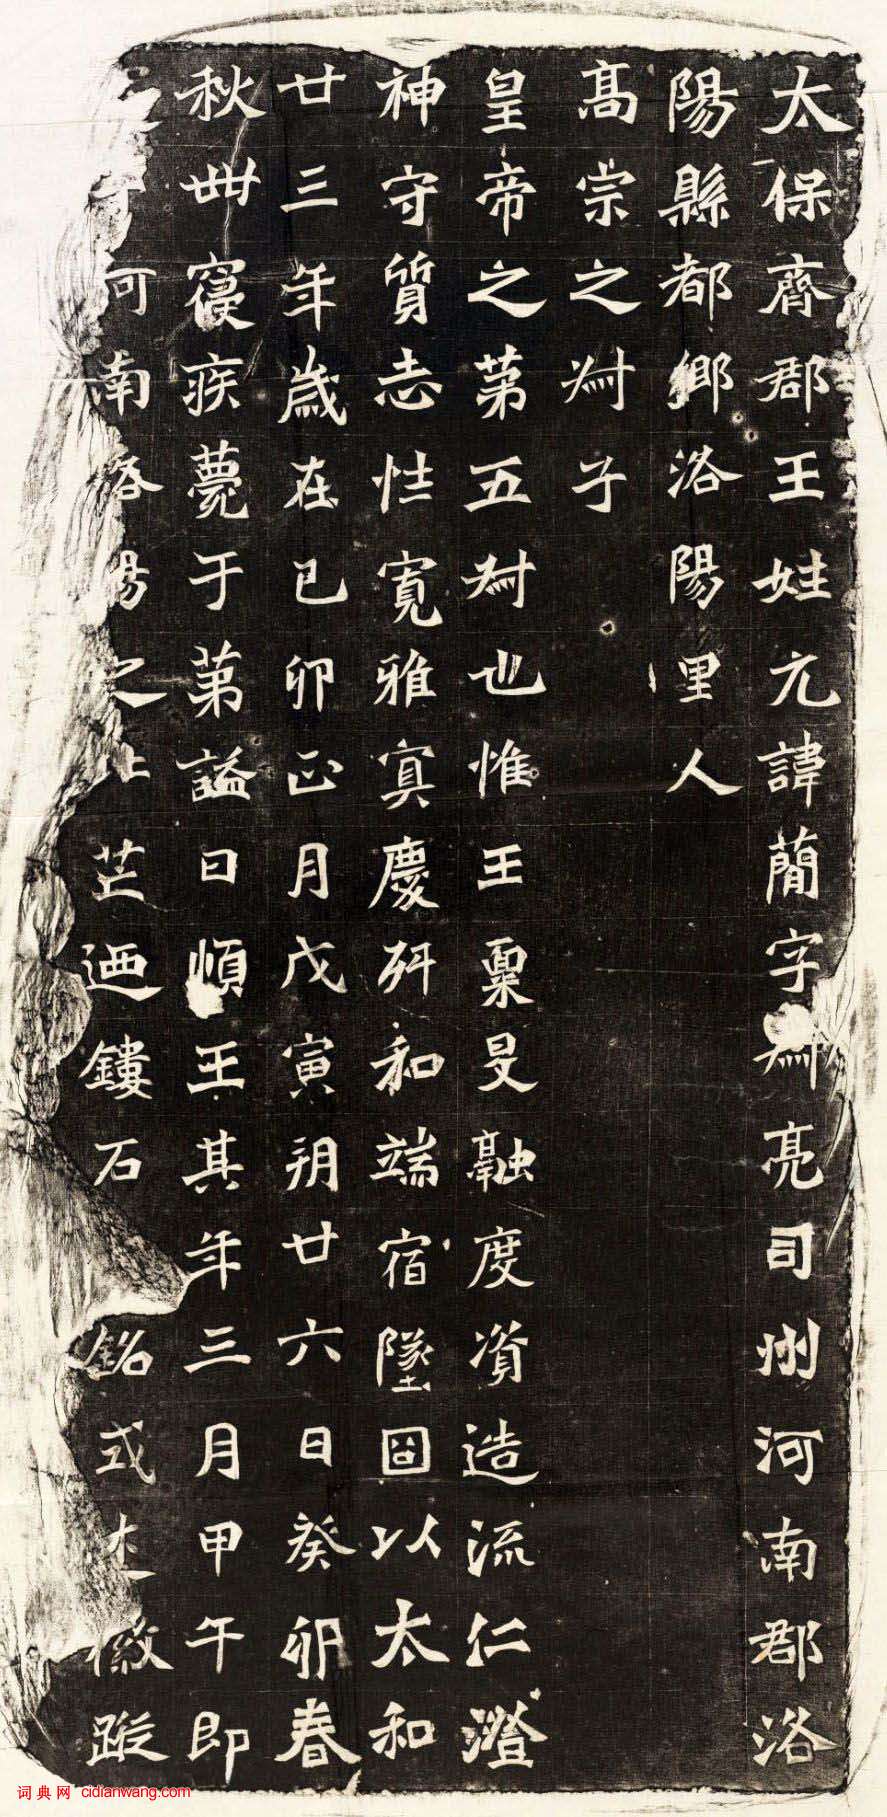 太保齊郡王姓元諱簡字叔亮司州河南郡洛
陽縣都鄉洛陽里人
高宗之叔子
皇帝之第五叔也惟王稟旻融度資造流仁澄
神守質志性寬雅寘慶舛和端宿墜以太和
廿三年歲在己卯正月戊寅朔廿六日癸卯春
秋卌寢疾薨于第謚曰順王其年三月甲午即
河南洛陽之北芒迺鏤石銘式述徽蹤
词典网 cidianwang.com